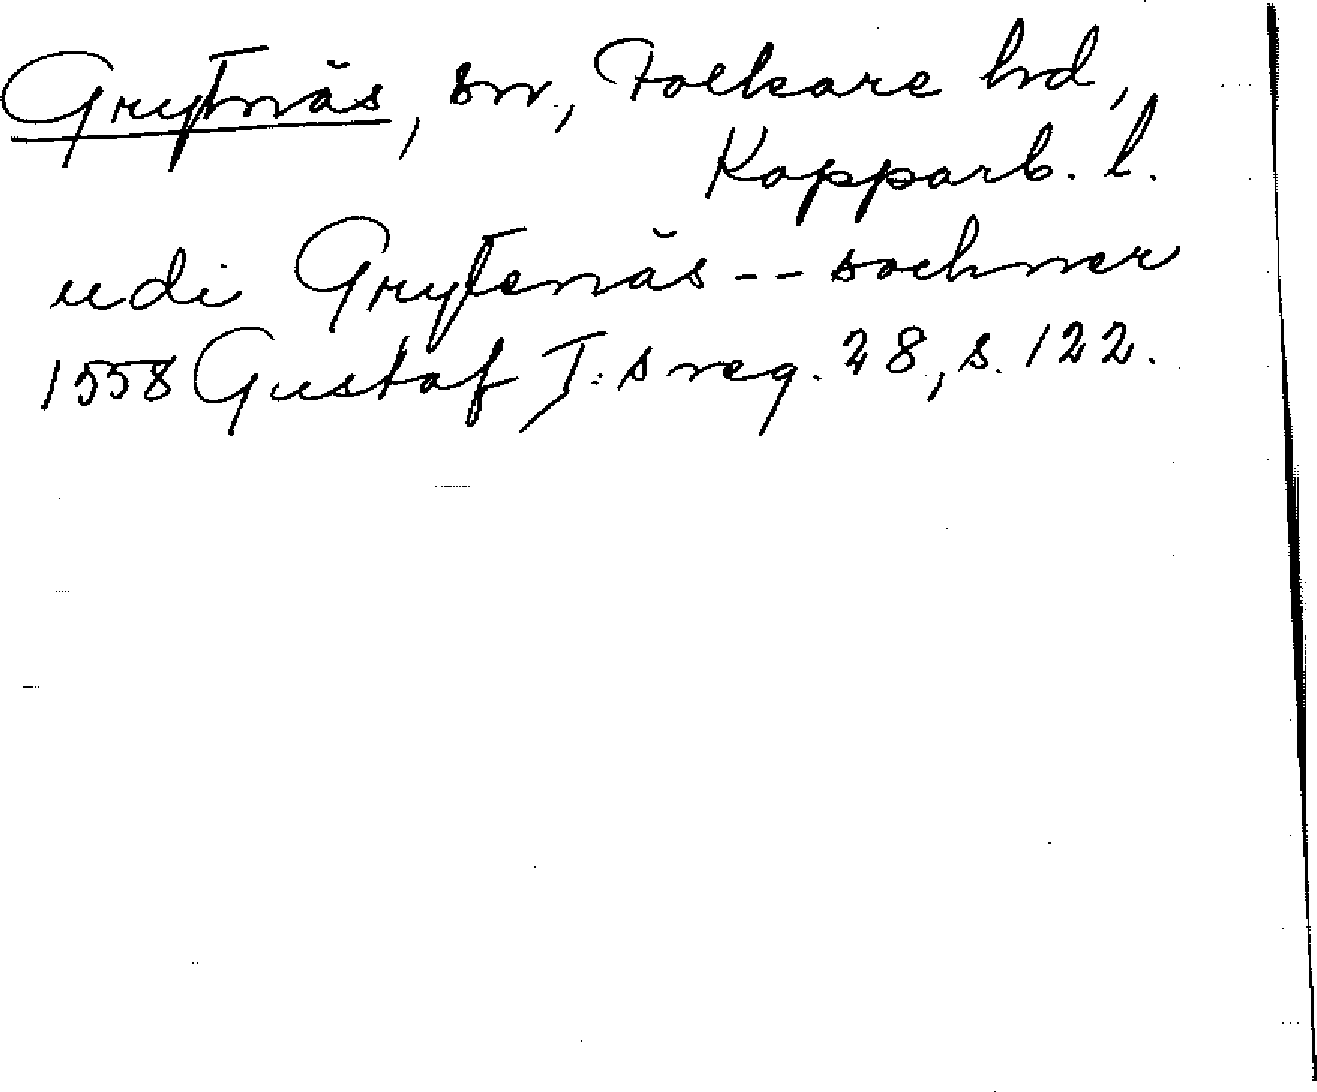 Grytnäs, sn., Folkare hd,
Kopparb. l.
udi Grytenäs -- sochner
1558 Gustaf I:s reg. 28, s. 122.